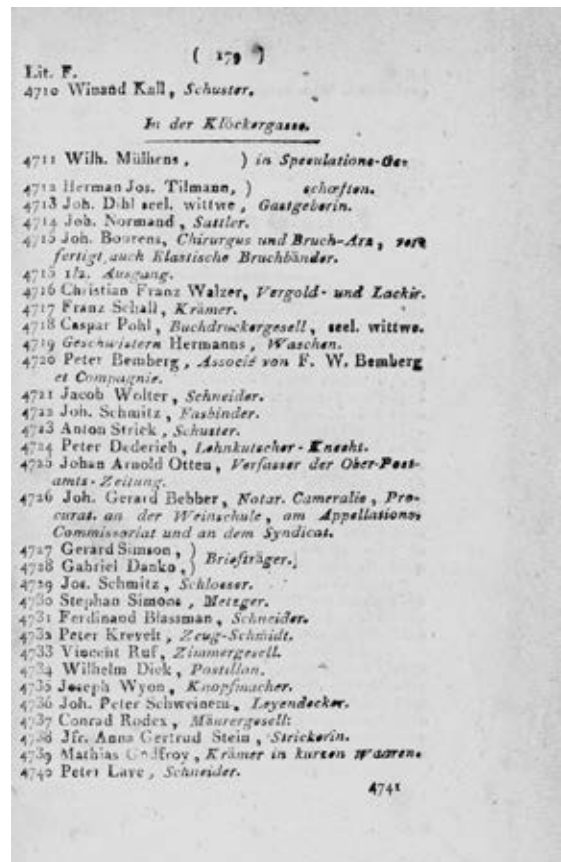 ( 179 )
Lit. F.
4710 Winand Kall, Schuster.
In der Klöckergasse.
4711 Wilh. Mülhens, ) in Speculations-Ges
4712 Herman Jos. Tilmann, ) schæften.
4713 Joh. Dihl seel. wittwe, Gastgeberin.
4714 Joh. Normand, Sattler.
4715 Joh. Bourens, Chirurgus und Bruch-Arz, ver
fertigt auch Elastische Bruchbänder.
4715 1/2. Ausgang.
4716 Christian Franz Walzer, Vergold- und Lackir.
4717 Franz Schall, Krämer.
4718 Caspar Pohl, Buchdruckergesell, seel. wittwe.
4719 Geschwistern Hermanns, Waschen.
4720 Peter Bemberg, Associé von F. W. Bemberg
et Compagnie.
4721 Jacob Wolter, Schneider.
4722 Joh. Schmitz, Fasbinder.
4723 Anton Strick, Schuster.
4724 Peter Dederich, Lehnkutscher-Knecht.
4725 Johan Arnold Otten, Verfasser der Ober-Post-
amts-Zeitung.
4726 Joh. Gerard Bebber, Notar. Cameralis, Pro-
curat. an der Weinschule, am Appellations
Commissoriat und an dem Syndicat.
4727 Gerard Simson, )
4728 Gabriel Danko, ) Briefträger.
4729 Jos. Schmitz, Schlosser.
4730 Stephan Simons, Metzger.
4731 Ferdinand Blassman, Schneider.
4732 Peter Krevelt, Zeug-Schmidt.
4733 Vincent Ruf, Zimmergesell.
4734 Wilhelm Dick, Postillon.
4735 Joseph Wyon, Knopfmacher.
4736 Joh. Peter Schweinem, Leyendecker.
4737 Conrad Rodex, Mäurergesell.
4738 Jfr. Anna Gertrud Stein, Strickerin.
4739 Mathias Godfroy, Krämer in kurzen Waaren.
4740 Peter Lave, Schneider.
4741